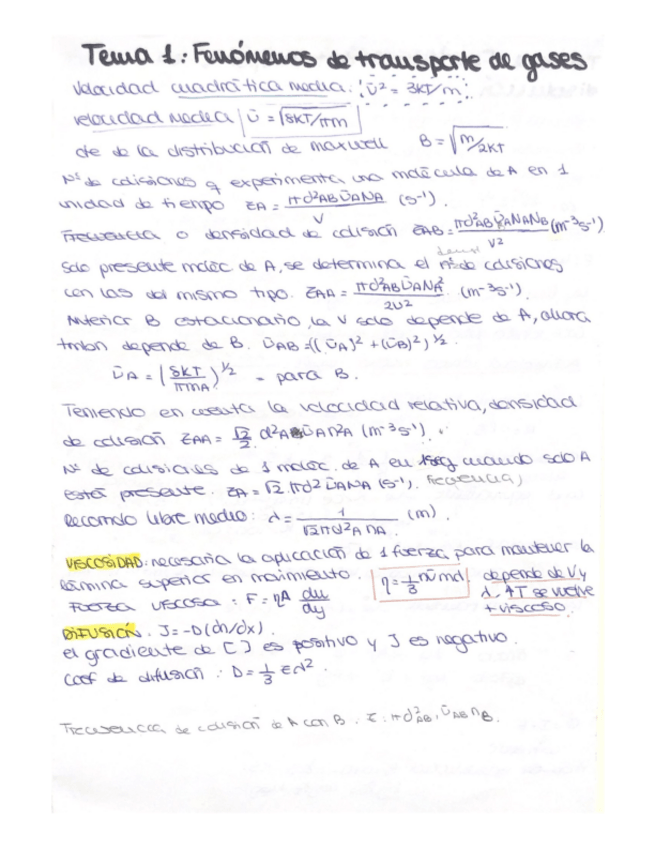 Tema 1: Fenómenos de transporte de gases
Velocidad cuadrática media: ū² = 3KT/m.
velocidad media Ū = √8KT/πm
cte de la distribución de maxwell B = √m/2KT
Nº de colisiones q experimenta una molécula de A en 1
unidad de tiempo ZA = πd²AB ŪA NA / V (s⁻¹).
Frecuencia o densidad de colisión ZAB = πd²AB ŪA NA NB / V² (m⁻³s⁻¹)
Solo presente moléc de A, se determina el nº de colisiones
con las del mismo tipo. ZAA = πd²AB ŪA NA² / 2V² (m⁻³s⁻¹).
Anterior B estacionario, la V solo depende de A, ahora
tmbn depende de B. ŪAB = ((ŪA)² + (ŪB)²)½.
ŪA = (8KT/πmA)½ = para B.
Teniendo en cuenta la velocidad relativa, densidad
de colisión ZAA = √2/2 d²A ŪA n²A (m⁻³s⁻¹).
Nº de colisiones de 1 moléc. de A en 1seg cuando solo A
está presente. ZA = √2 πd² ŪA NA (s⁻¹). Frecuencia,
Recorrido libre medio: λ = 1 / √2πd²A nA (m).
VISCOSIDAD: necesaria la aplicación de 1 fuerza, para mantener la
lámina superior en movimiento. η = 1/3 nūmλ depende de V y
Fuerza viscosa: F = ηA du/dy λ. ↑T se vuelve
+ viscoso.
DIFUSIÓN. J = -D(dn/dx).
el gradiente de [ ] es positivo y J es negativo.
Coef de difusión: D = 1/3 Zλ².
Frecuencia de colisión de A con B. z: πd²AB, ŪAB nB.